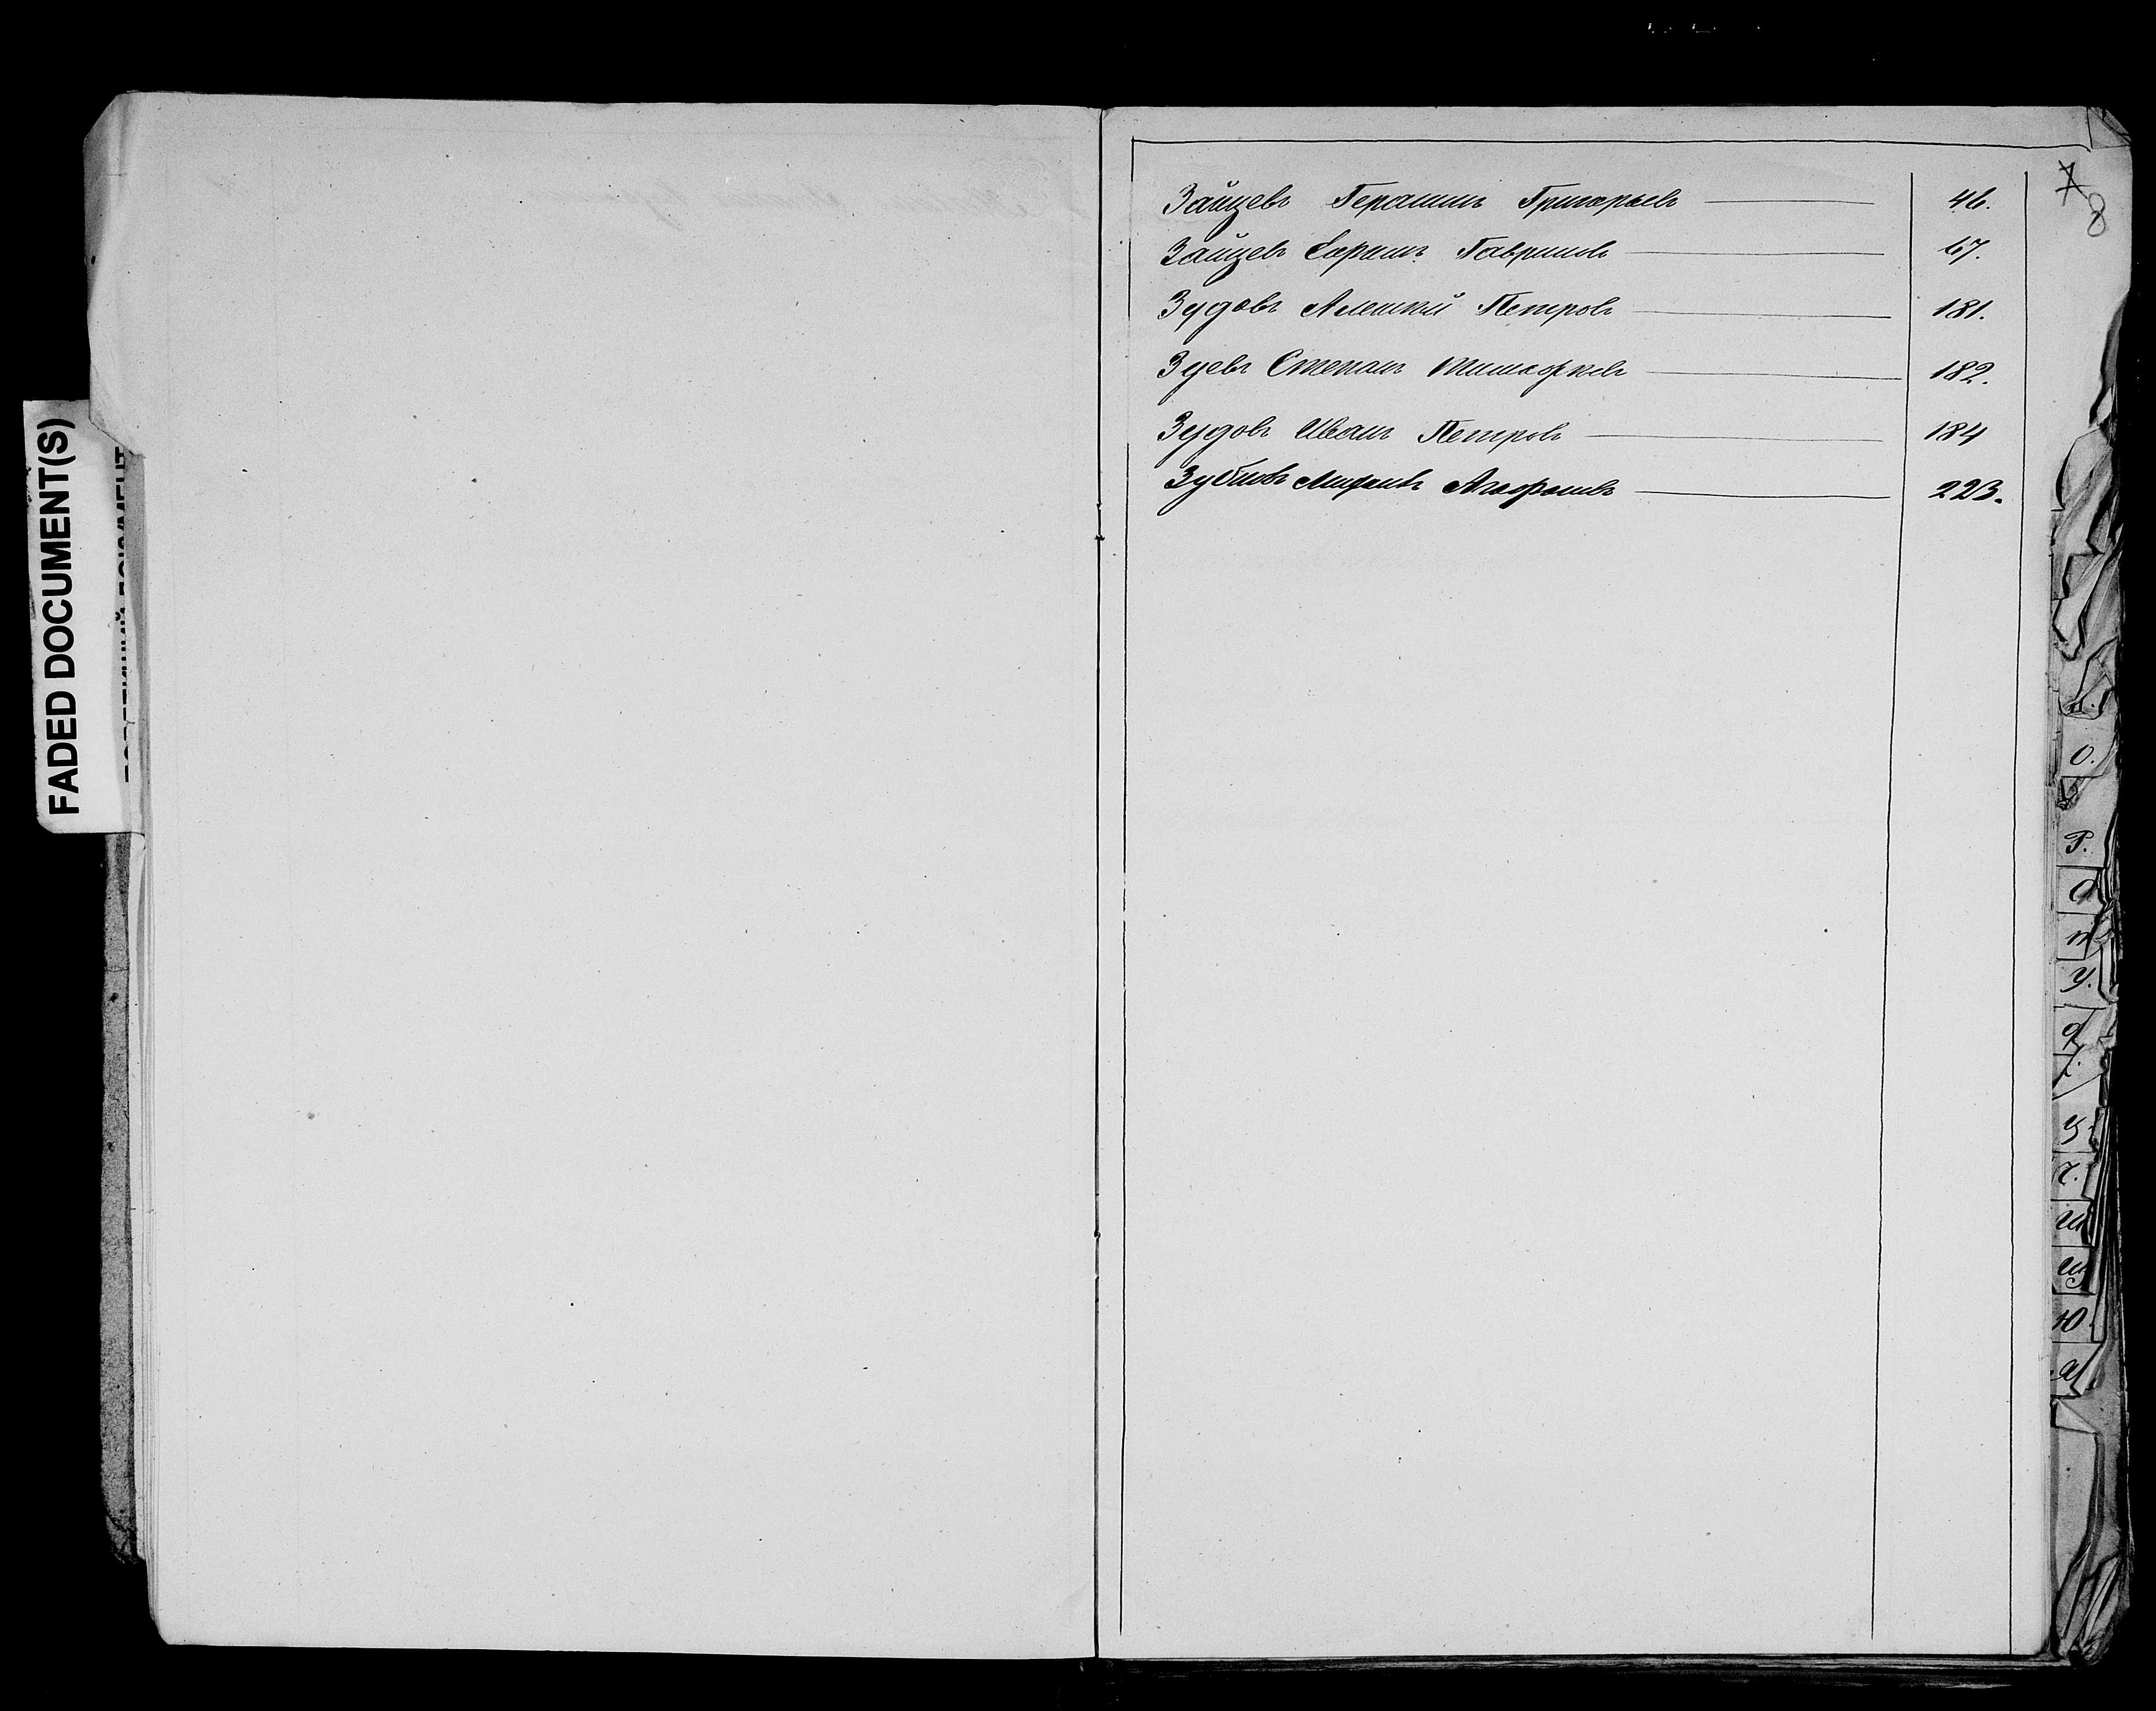 FADED DOCUMENT(S)
7
8
Зайцевъ Герасимъ Григорьевъ 46.
Зайцевъ Ефимъ Гавриловъ 67.
Зудовъ Алексѣй Петровъ 181.
Зуевъ Степанъ Тимофѣевъ 182.
Зудовъ Иванъ Петровъ 184
Зубковъ 223.
О.
Р.
С
Т
У.
Ф
Х.
Ц.
Ч.
Ш
Щ
Ю.